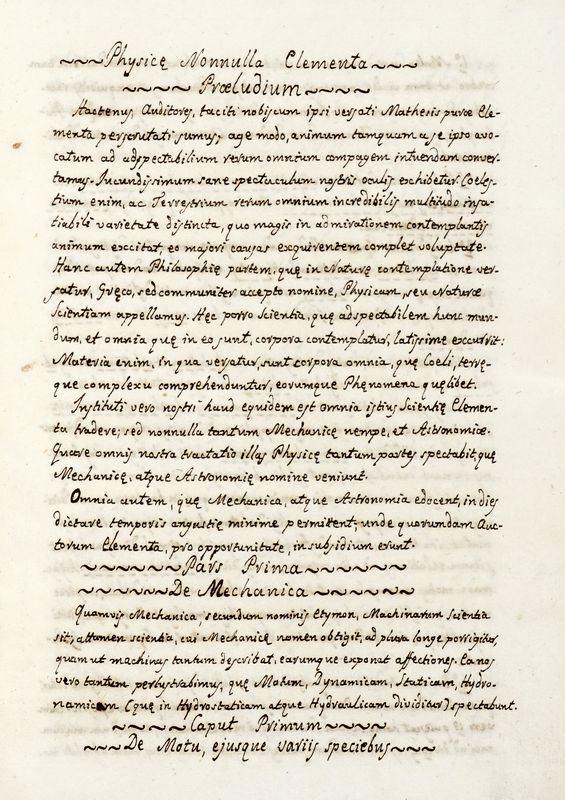 Physicę Nonnulla Elementa
Præludium
Hactenus, Auditores, taciti nobiscum ipsi versati Mathesis puræ Ele-
menta perscrutati sumus; age modo, animum tamquam a se ipso avo-
catum ad adspectabilium rerum omnium compagem intuendam conver-
tamus. Jucundissimum sane spectaculum nostris oculis exhibetur. Coeles-
tium enim, ac Terrestrium rerum omnium incredibilis multitudo insa-
tiabili varietate distincta, quo magis in admirationem contemplantis
animum excitat, eo majori causas exquirentem complet voluptate.
Hanc autem Philosophię partem, quę in Naturę contemplatione ver-
satur, Gręco, sed communiter accepto nomine, Physicam, seu Naturæ
Scientiam appellamus. Hęc porro Scientia, quę adspectabilem hunc mun-
dum, et omnia quę in eo sunt, corpora contemplatur, latissime excurrit:
Materia enim, in qua versatur, sunt corpora omnia, quę Coeli, terrę-
que complexu comprehenduntur, eorumque Phęnomena quęlibet.
Instituti vero nostri haud equidem est omnia istius Scientię Elemen-
ta tradere; sed nonnulla tantum Mechanicę nempe, et Astronomiæ.
Quare omnis nostra tractatio illas Physicę tantum partes spectabit, quę
Mechanicę, atque Astronomię nomine veniunt.
Omnia autem, quę Mechanica, atque Astronomia edocent, in dies
dictare temporis angustię minime permittent; unde quorundam Auc-
torum Elementa, pro opportunitate, in subsidium erunt.
Pars Prima
De Mechanica
Quamvis Mechanica secundum nominis Etymon, Machinarum Scientia
sit; attamen scientia, cui Mechanicę nomen obtigit, ad plura longe porrigitur,
quam ut machinas tantum describat, earumque exponat affectiones. Ea nos
vero tantum perlustrabimus, quę Motum, Dynamicam, Staticam, Hydro-
namicam (quę in Hydrostaticam atque Hydraulicam dividitur) spectabunt.
Caput Primum
De Motu, ejusque variis speciebus